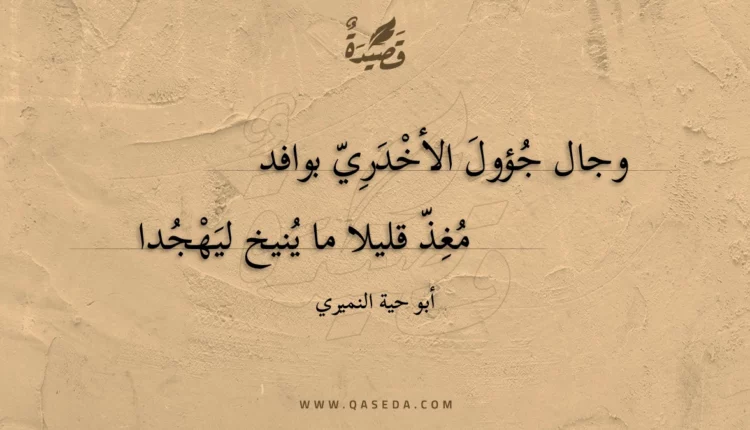 قَصِيْدَةٌ
وجال جُؤولَ الأخْدَرِيّ بوافد
مُغِذّ قليلا ما يُنيخ ليَهْجُدا
أبو حية النميري
WWW.QASEDA.COM